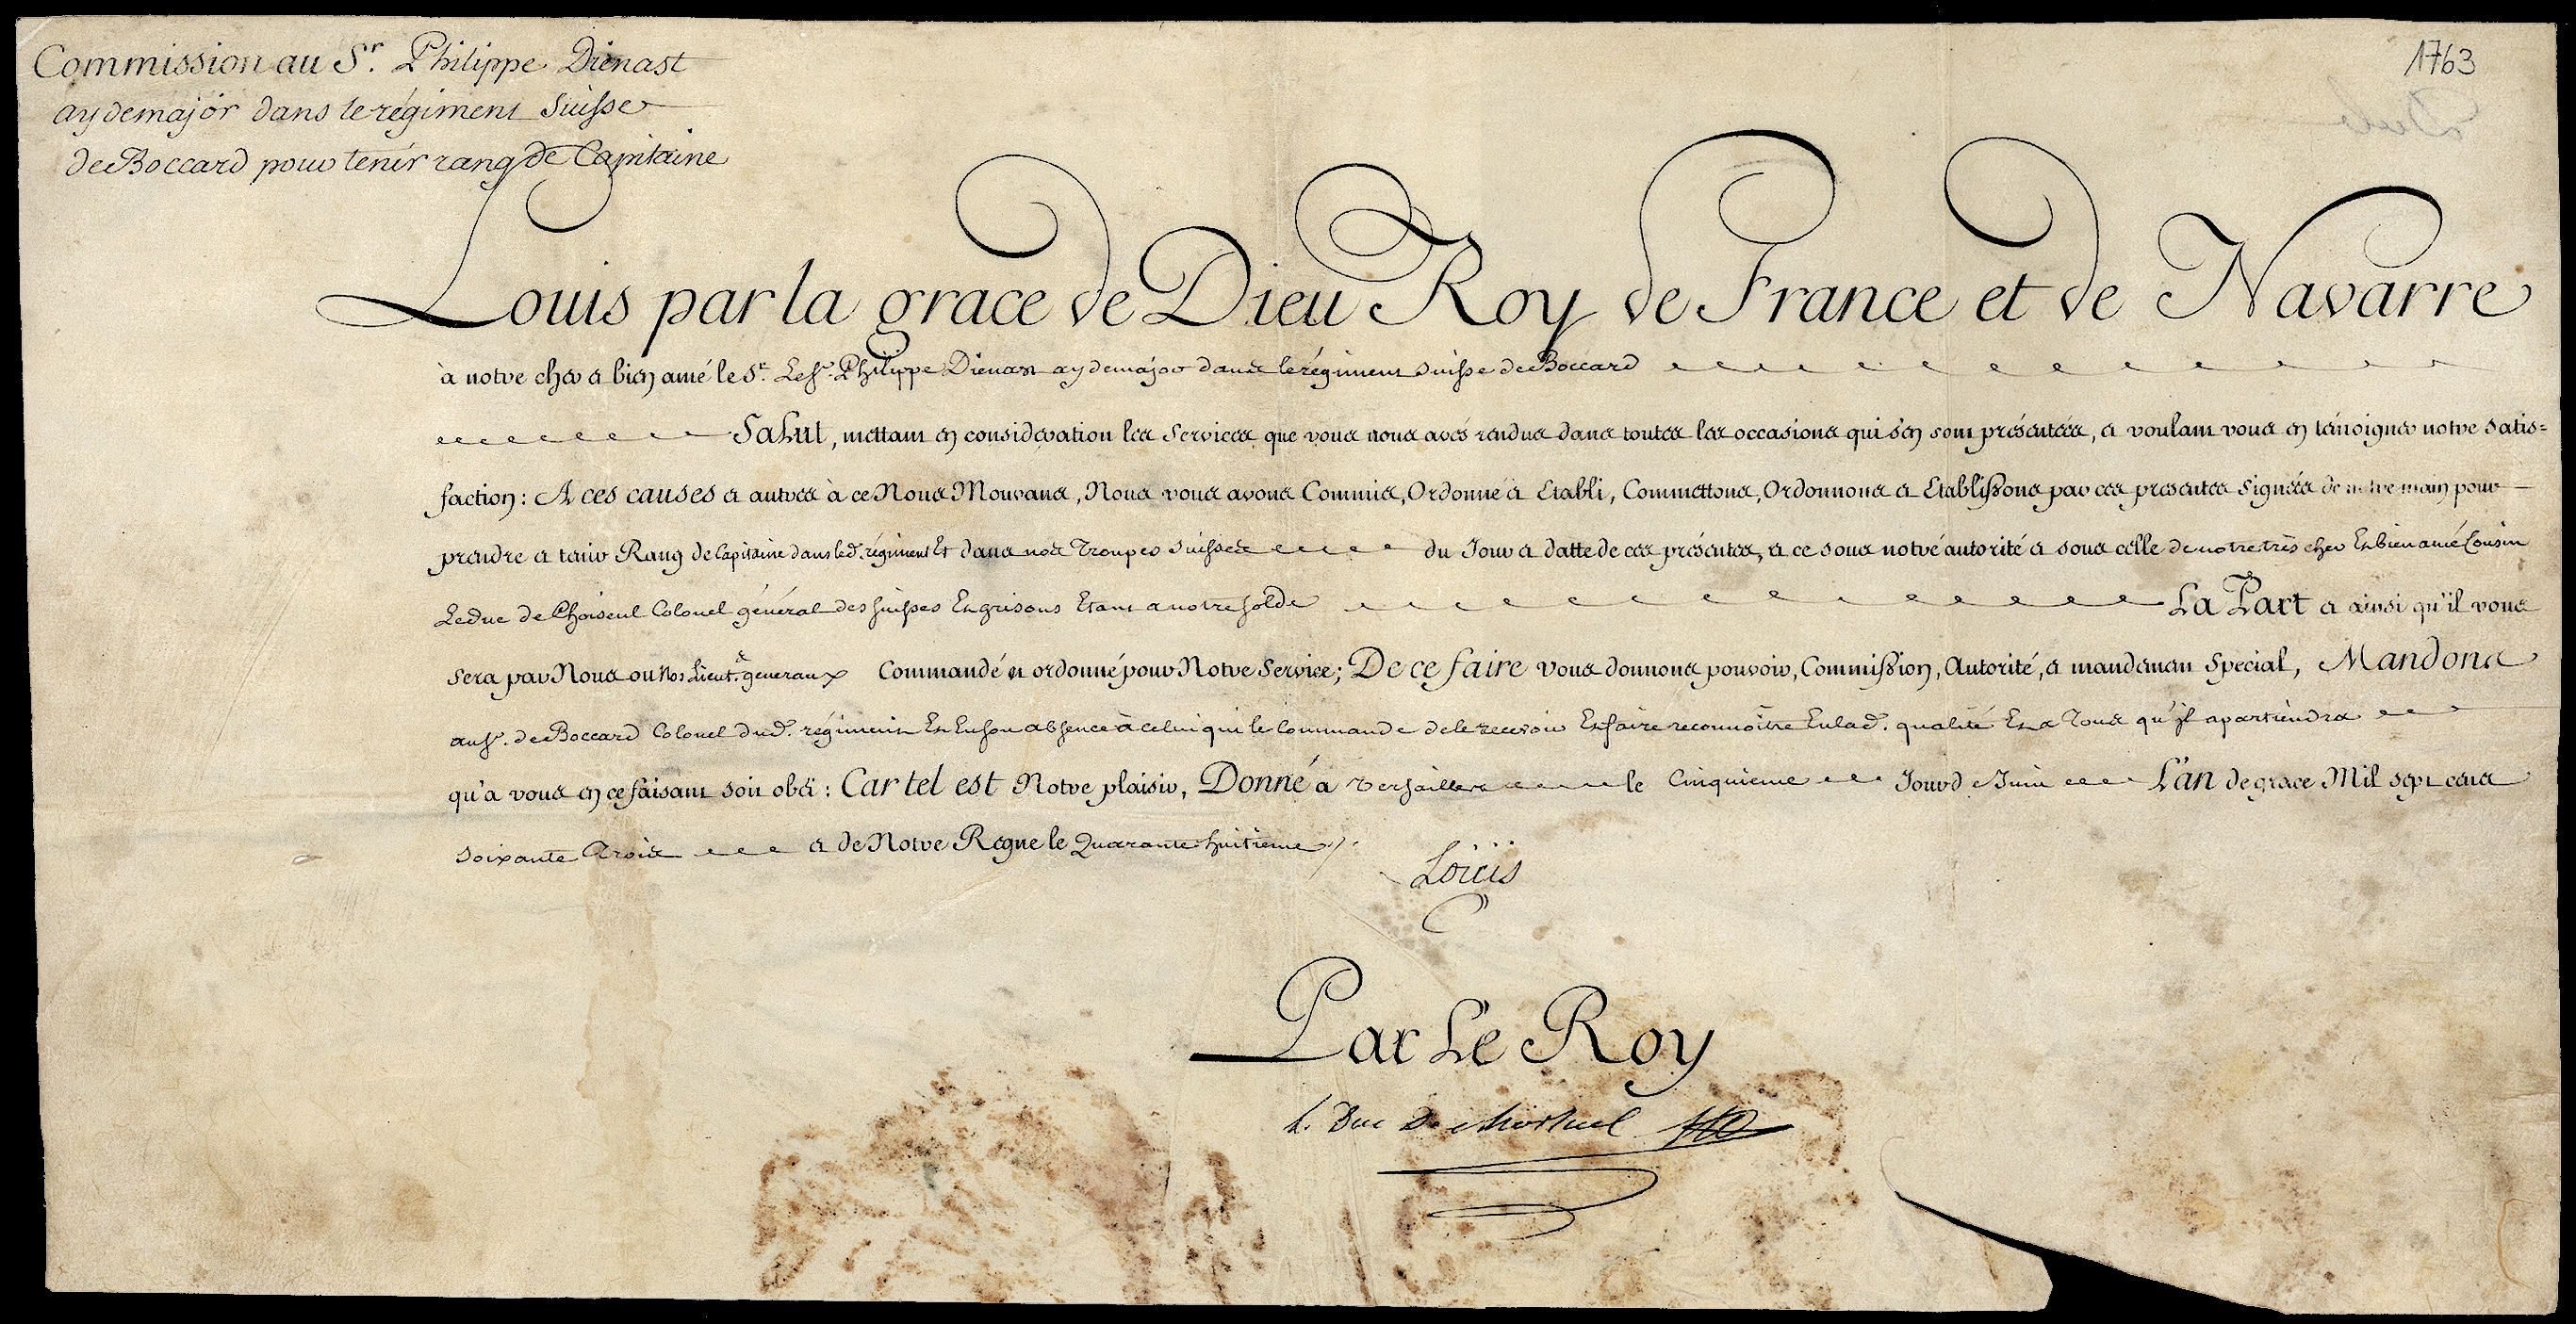 Commission au Sr. Philippe Dienast
aydemajor dans le régiment Suisse
de Boccard pour tenir rang de Capitaine
1763
Louis par la grace de Dieu Roy de France et de Navarre
à notre cher et bien amé le Sr. Le Sr. Philippe Dienast aydemajor dans le régiment Suisse de Boccard
Salut, mettant en consideration les Services que vous nous avés rendus dans toutes les occasions qui s'en sont présentées, et voulant vous en témoigner notre Satis=
faction: A ces causes et autres à ce Nous Mouvans, Nous vous avons Commis, Ordonné et Etabli, Commettons, Ordonnons et Etablissons par ces presentes Signées de notre main pour
prendre et tenir Rang de Capitaine dans led. régiment Et dans nos Troupes Suisses du Jour et datte de ces présentes, et ce sous notre autorité et sous celle de notre très cher Et bien amé Cousin
Le duc de Choiseul Colonel général des Suisses Et grisons Etant a notre solde La Part et ainsi qu'il vous
sera par Nous ou Nos Lieut.s generaux Commandé et ordonné pour Notre Service; De ce faire vous donnons pouvoir, Commission, Autorité, et mandement Special, Mandons
au Sr. de Boccard Colonel dud. régiment Et En son absence à celui qui le Commande de le recevoir Et faire reconnoître En lad. qualité Et a Tous qu'il apartiendra
qu'a vous en ce faisant soit obéi: Car tel est Notre plaisir, Donné a Versailles le Cinquieme Jour d e Juin L'an de grace Mil sept cens
soixante Trois et de Notre Regne le Quarante-huitieme ./.
Louis
Par Le Roy
le Duc De choiseul